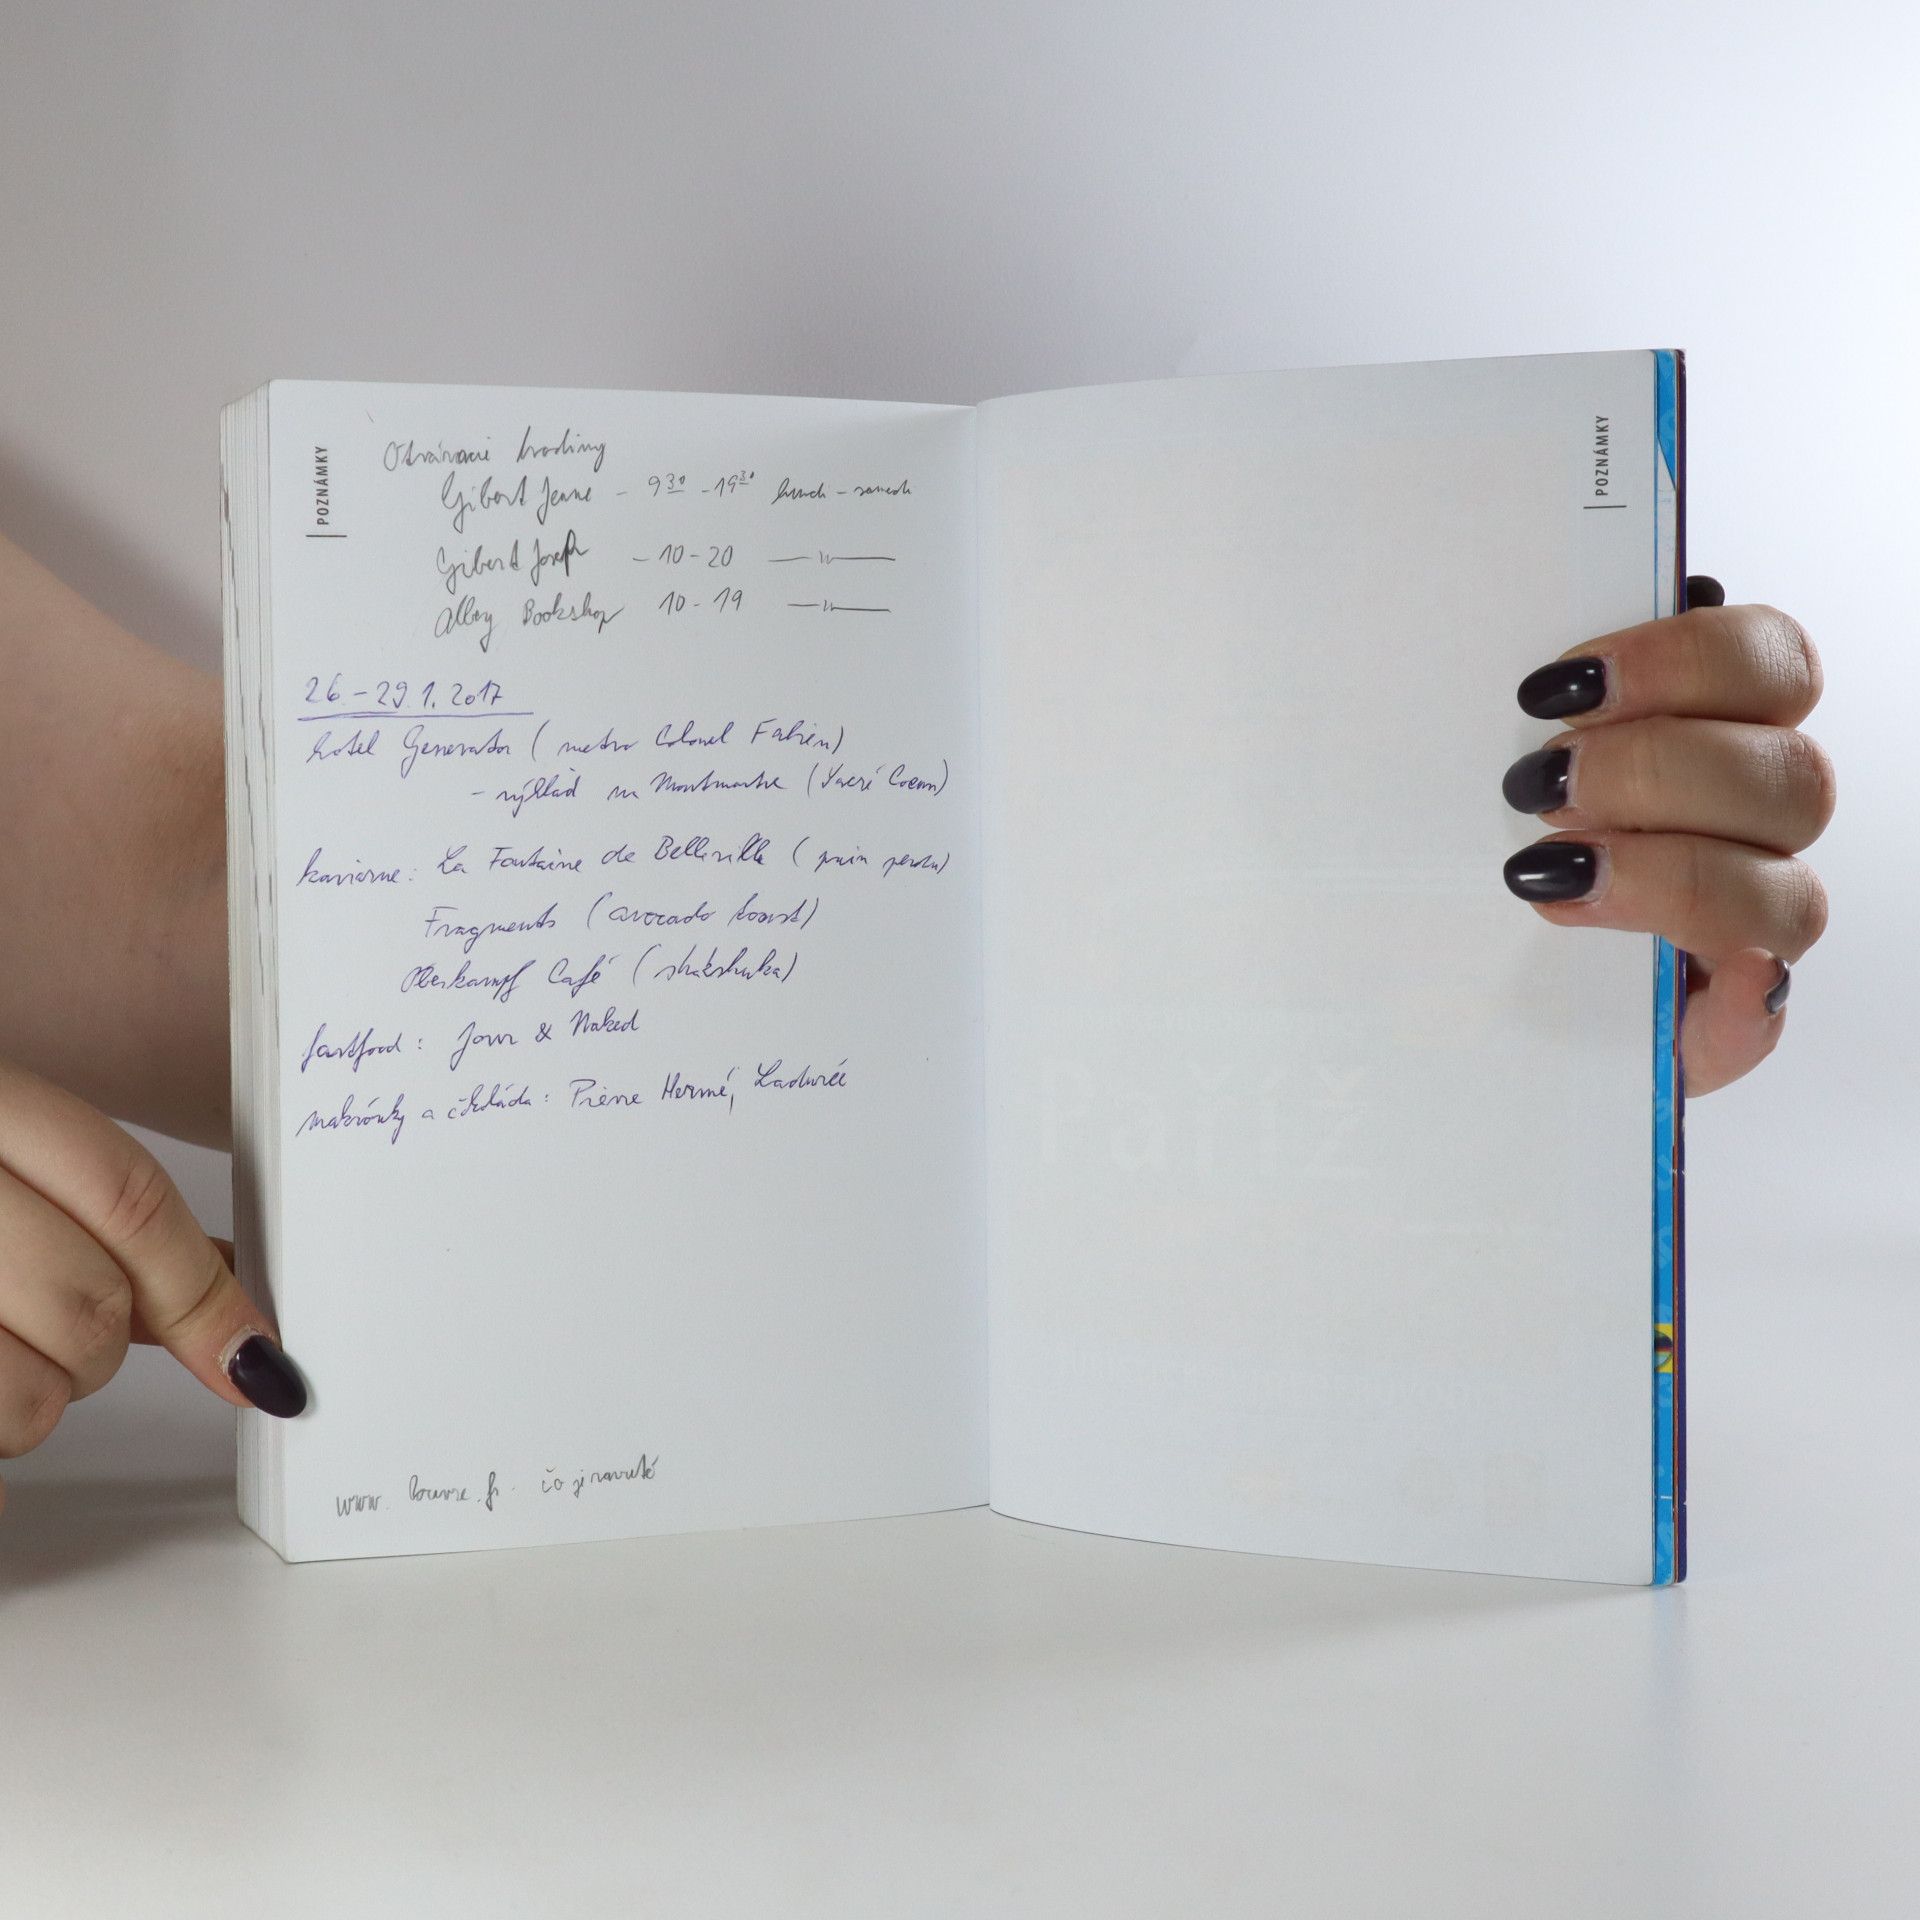 POZNÁMKY
Otváracie hodiny
Gibert Jeune - 9³⁰ - 19³⁰
Gibert Joseph - 10-20 —〃—
Abbey Bookshop 10-19 —〃—
26.-29.1.2017
hotel Generator (metro Colonel Fabien)
- výhľad na Montmartre (Sacré Coeur)
kaviarne: La Fontaine de Belleville (pain perdu)
Fragments (avocado toast)
Oberkampf Café (shakshuka)
fastfood: Jour & Naked
makrónky a čokoláda: Pierre Hermé, Ladurée
www.louvre.fr.
POZNÁMKY